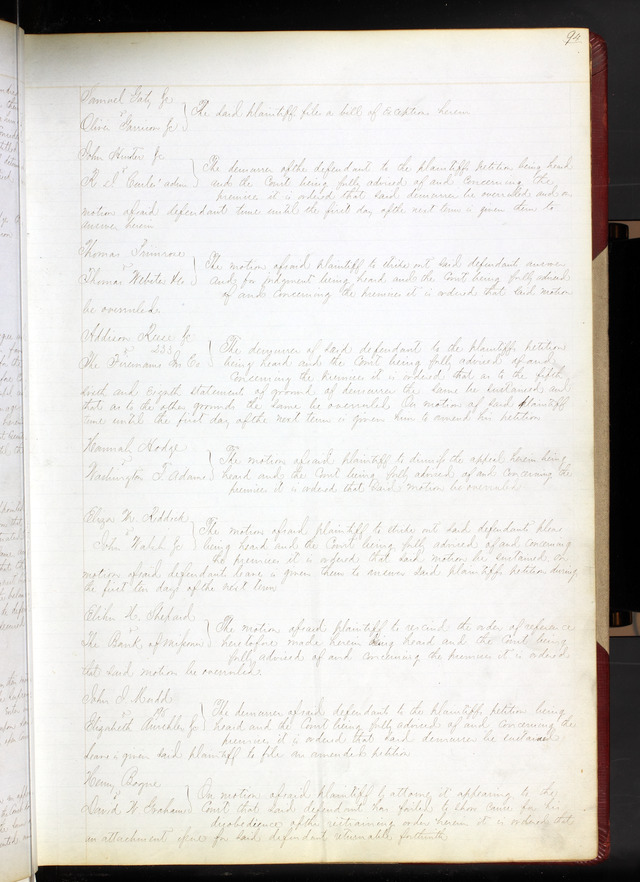 94
Samuel Gaty &c
vs
Oliver Garrison &c } The said plaintiffs file a bill of exceptions herein
John Hunter &c
vs } The demurrer of the defendant to the plaintiffs petition being heard
adm and the Court being fully advised of and concerning the
premises it is ordered that said demurrer be overruled and on
motion of said defendant time until the first day of the next term is given them to
answer herein
Thomas Primrose
vs } The motion of said plaintiff to strike out said defendants answer
Thomas Webster &c and for judgment being heard and the Court being fully advised
of and concerning the premises it is ordered that said motion
be overruled.
Addison Reese &c
vs 233 } The demurrer of said defendant to the plaintiffs petition
The Firemans In Co being heard and the Court being fully advised of and
concerning the premises it is ordered that as to the fifth
sixth and eighth statement of ground of demurrer the same be sustained and
that as to the other grounds the same be overruled On motion of said plaintiff
time until the first day of the next term is given him to amend his petition
Hannah Hodge
vs } The motion of said plaintiff to dismiss the appeal herein being
Washington T. Adams heard and the Court being fully advised of and concerning the
premises it is ordered that said motion be overruled
W. Reddick
vs } The motion of said plaintiff to strike out said defendants plea
John Walsh &c being heard and the Court being fully advised of and concerning
the premises it is ordered that said motion be sustained on
motion of said defendant leave is given them to answer said plaintiffs petition during
the first ten days of the next term
Elihu H. Shepard
vs } The motion of said plaintiff to rescind the order of reference
The Bank of Missouri heretofore made herein being heard and the Court being
fully advised of and concerning the premises it is ordered
that said motion be overruled
John J. Mudd
vs } The demurrer of said defendant to the plaintiffs petition being
Elizabeth &c heard and the Court being fully advised of and concerning the
premises it is ordered that said demurrer be sustained
leave is given said plaintiff to file an amended petition
Henry Bogue
vs } On motion of said plaintiff by attorney it appearing to the
David W. Graham Court that said defendant has failed to show cause for his
disobedience of the restraining order herein it is ordered that
an attachment issue for said defendant returnable forthwith